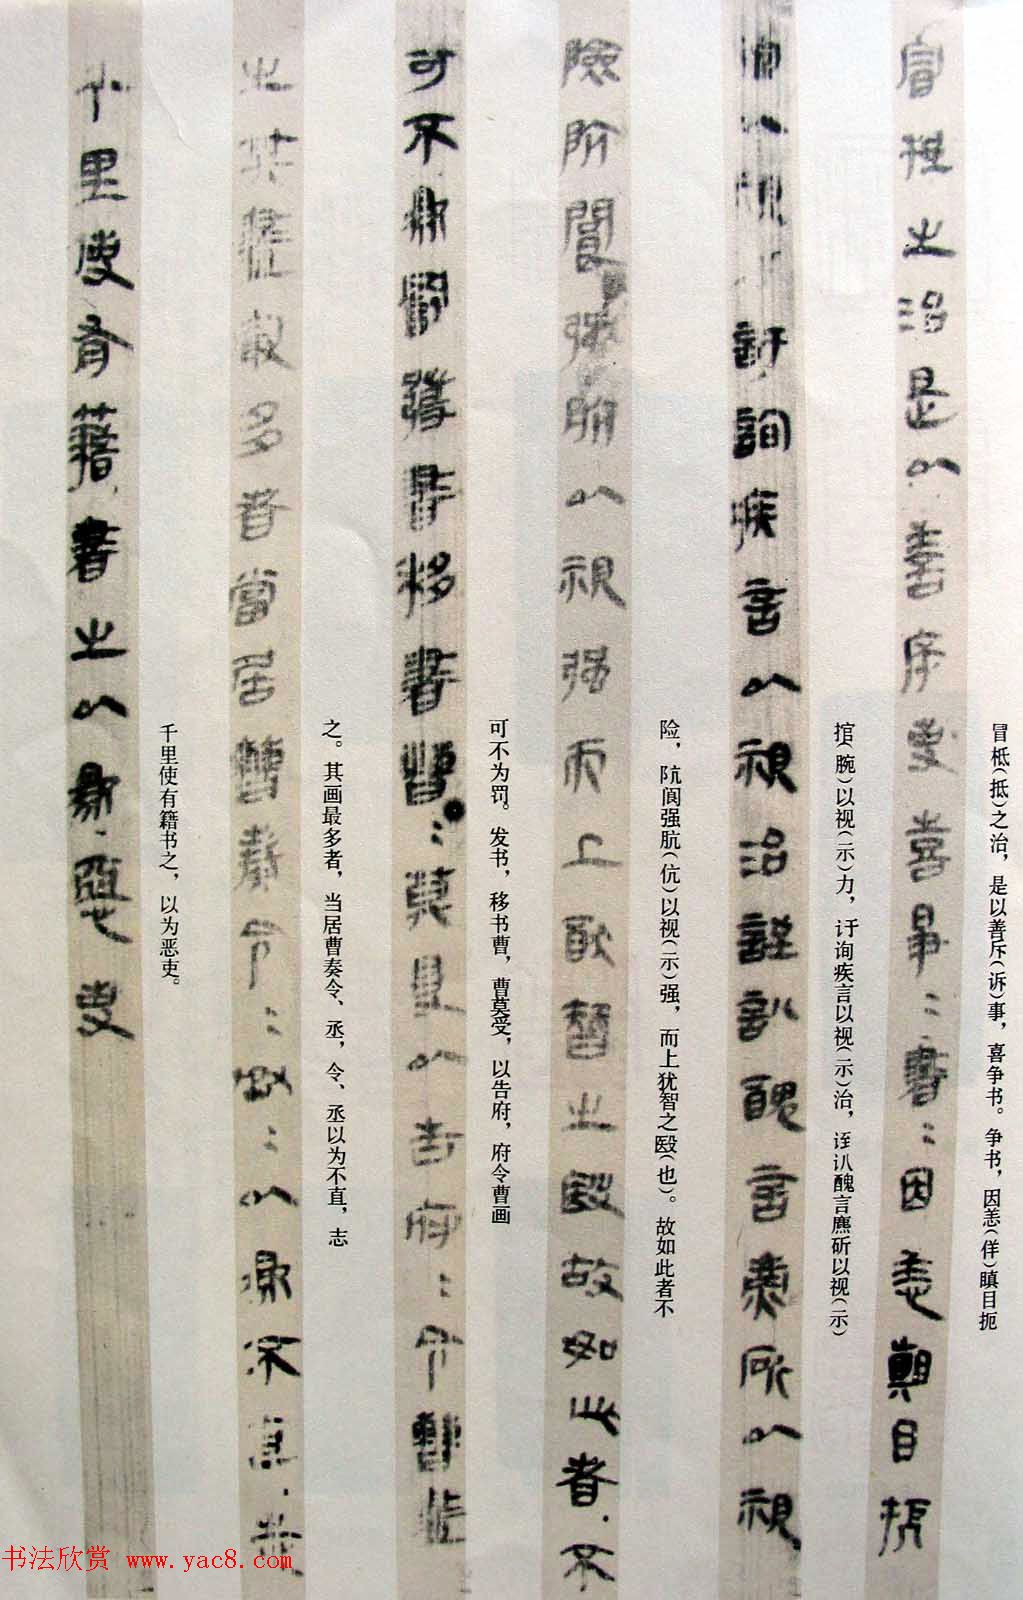 冒柢(抵)之治，是以善斥(诉)事，喜争书。争书，因恙(佯)瞋目扼
捾(腕)以视(示)力，讦询疾言以视(示)治，誈訆醜言麃斫以视(示)
险，阬阆强肮(伉)以视(示)强，而上犹智之殹(也)。故如此者不
可不为罚。发书，移书曹，曹莫受，以告府，府令曹画
之。其画最多者，当居曹奏令、丞，令、丞以为不直，志
千里使有籍书之，以为恶吏。
书法欣赏 www.yac8.com